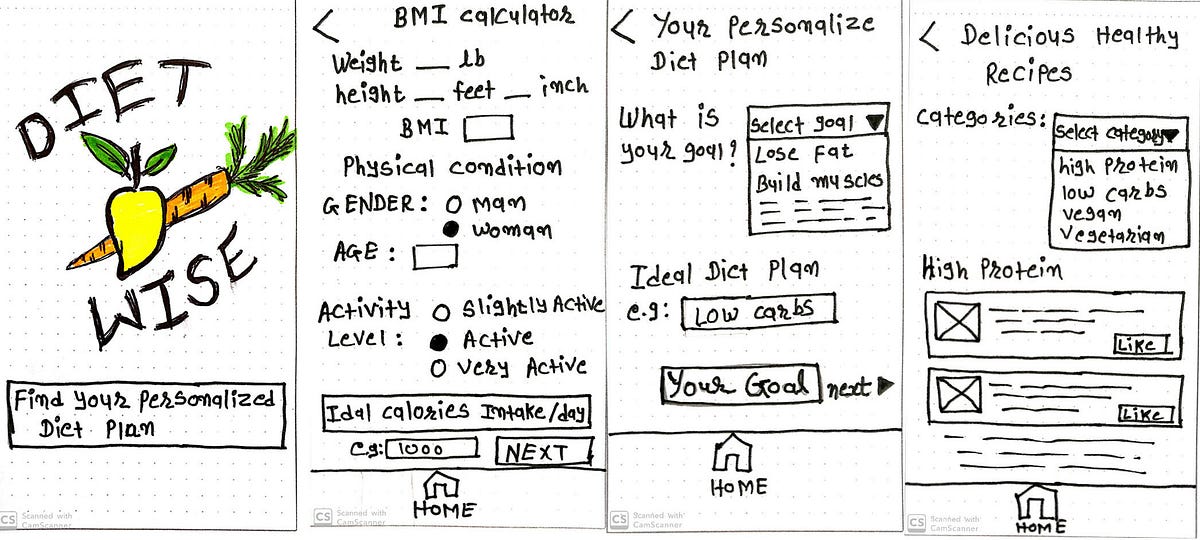 DIET
WISE
Find your personalized
Diet Plan
CS Scanned with
CamScanner
< BMI calculator
Weight __ lb
height __ feet __ inch
BMI
Physical condition
GENDER: O Man
Woman
AGE:
Activity O Slightly Active
Level: Active
O Very Active
Idal calories Intake/day
eg: 1000 NEXT
HOME
CS Scanned with
CamScanner
< Your Personalize
Diet Plan
What is
your goal?
Select goal ▼
Lose Fat
Build muscles
Ideal Diet Plan
e.g: Low carbs
Your Goal next ▶
HOME
CS Scanned with
CamScanner
< Delicious Healthy
Recipes
categories:
Select category▼
high Protein
low carbs
vegan
Vegetarian
High Protein
Like
Like
HOME
CS Scanned with
CamScanner